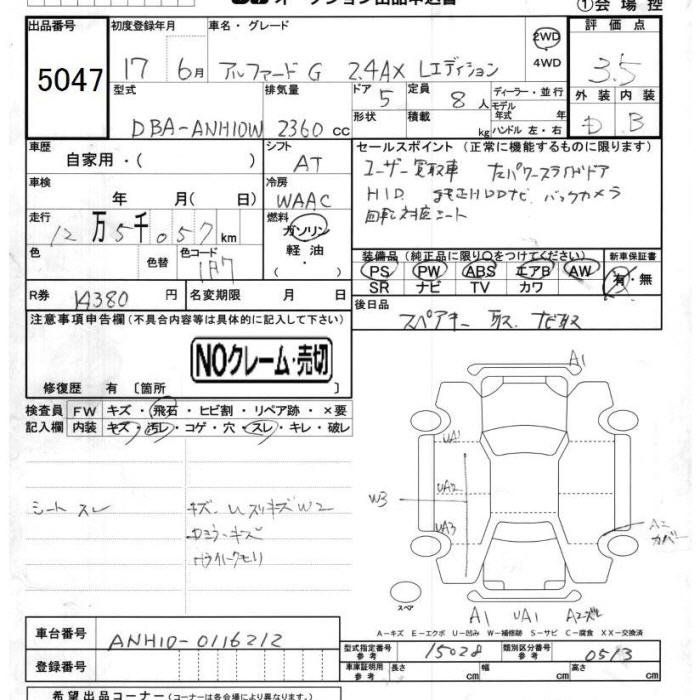 オークション出品申込書
①会場控
出品番号 初度登録年月 車名・グレード 2WD 4WD 評価点
5047 17 6月 アルファードG 2.4AX Lエディション 3.5
型式 排気量 ドア 定員 ディーラー・並行 外装 内装
DBA-ANH10W 2360cc 5 8人 モデル年式 年式 D B
形状 積載 kg ハンドル 左・右
車歴 シフト セールスポイント(正常に機能するものに限ります)
自家用・( ) AT ユーザー買取車 左パワースライドドア
車検 冷房 HID 純正HDDナビ バックカメラ
年 月( 日) WAAC 回転対応シート
走行 燃料
12万5千057km ガソリン 軽油・( )
色 色替 色コード
1A7
装備品(純正品に限り○をつけてください) 新車保証書
PS PW ABS エアB AW 有・無
SR ナビ TV カワ
R券 14380円 名変期限 月 日
後日品
スペアキー 取ス ナビ取ス
注意事項申告欄(不具合内容等は具体的に記入して下さい)
NOクレーム・売切
修復歴 有 〔箇所 〕
検査員 FW キズ・飛石・ヒビ割・リペア跡・×要
記入欄 内装 キズ・汚レ・コゲ・穴・スレ・キレ・破レ
シート スレ
キズ・U スリキズW2
A1
UA1
UA2
UA3
W3
A2
カバー
スペア
A1 UA1
A-キズ E-エクボ U-凹み W-補修跡 S-サビ C-腐食 XX-交換済
車台番号 ANH10-0116212
型式指定番号 参考 15028 類別区分番号 参考 0513
登録番号
車庫証明用 参考 長さ cm 幅 cm 高さ cm
希望出品コーナー(コーナーは各会場により異なります。)